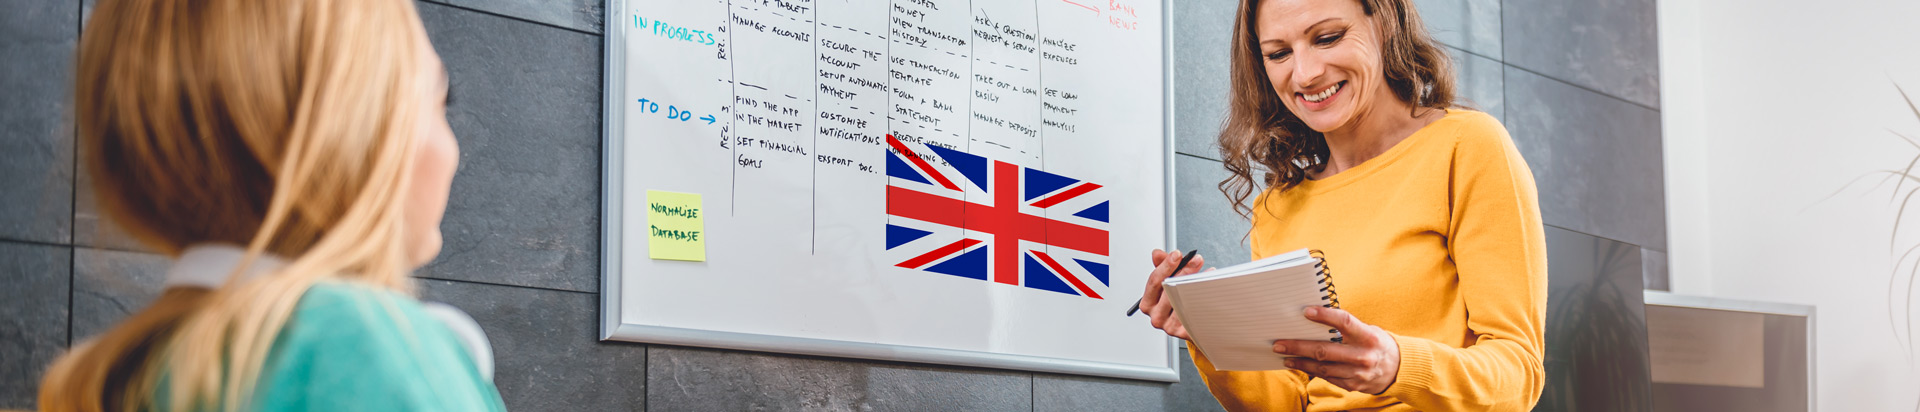 IN PROGRESS
REL. 2
& TABLET
MANAGE ACCOUNTS
SECURE THE
ACCOUNT
SETUP AUTOMATIC
PAYMENT
MONEY
VIEW TRANSACTION
HISTORY
USE TRANSACTION
TEMPLATE
FORM A BANK
STATEMENT
ASK A QUESTION
REQUEST A SERVICE
TAKE OUT A LOAN
EASILY
MANAGE DEPOSITS
ANALYZE
EXPENSES
SEE LOAN
PAYMENT
ANALYSIS
BANK
NEWS
TO DO →
REL. 3
FIND THE APP
IN THE MARKET
SET FINANCIAL
GOALS
CUSTOMIZE
NOTIFICATIONS
EXSPORT DOC.
RECEIVE UPDATES
NORMALIZE
DATABASE